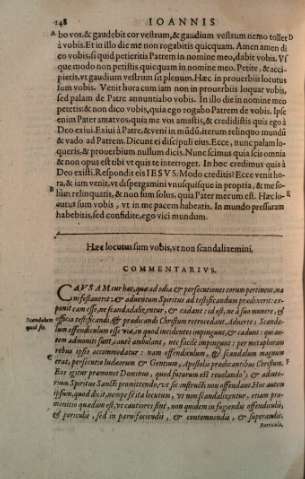 148 IOANNIS
bo vos: & gaudebit cor vestrum, & gaudium vestrum nemo tollet
à vobis. Et in illo die me non rogabitis quicquam. Amen amen di
co vobis, si quid petieritis Patrem in nomine meo, dabit vobis. Vs
que modo non petistis quicquam in nomine meo. Petite, & acci-
pietis, vt gaudium vestrum sit plenum. Hæc in prouerbiis locutus
sum vobis. Venit hora cum iam non in prouerbiis loquar vobis,
sed palam de Patre annuntiabo vobis. In illo die in nomine meo
petetis: & non dico vobis, quia ego rogabo Patrem de vobis. Ipse
enim Pater amat vos, quia vos me amastis, & credidistis quia ego à
Deo exiui. Exiui à Patre, & veni in mūdū, iterum relinquo mundū
& vado ad Patrem. Dicunt ei discipuli eius, Ecce, nunc palam lo-
queris, & prouerbium nullum dicis. Nunc scimus quia scis omnia
& non opus est tibi vt quis te interroget. In hoc credimus quia à
Deo existi. Respondit eis IESVS. Modo creditis? Ecce venit ho-
ra, & iam venit, vt dispergamini vnusquisque in propria, & me so-
lum relinquatis, & non sum solus, quia Pater mecum est. Hæc lo-
cutus sum vobis, vt in me pacem habeatis. In mundo pressuram
habebitis, sed confidite, ego vici mundum.
Hæc locutus sum vobis, vt non scandalizemini.
COMMENTARIVS.
CAVSAM cur hæc, quæ ad odia & persecutiones eorum pertinent, ma
nifestauerit: & aduentum Spiritus ad testificandum prædixerit: ex-
ponit cam esse, ne scandalizētur, & cadant: id est, ne à suo munere, &
Scandalum officio testificandi & prædicandi Christum retrocedant. Aduerte: Scanda-
quid sit. lum offendiculum esse viæ, in quod incidentes impingunt, & cadunt: quo au-
tem admoniti sunt, cautè ambulant, nec facilè impingunt: per metaphoram
rebus ipsis accommodatur: nam offendiculum, & scandalum magnum
erat, persecutio Iudæorum & Gentium, Apostolis prædicantibus Christum.
Hoc igitur præmonet Dominus, quod futurum est reuelando, & aduen-
rium Spiritus Sancti promittendo, vt sic instructi non offendant. Hoc autem
ipsum, quod dicit, nempe se ita locutum, vt non scandalizentur, etiam præ-
monitio quædam est, vt cautiores sint, non quidem in fugiendis offendiculis,
& periculis, sed in parui faciendis, & contemnendis, & superandis.
Particula,